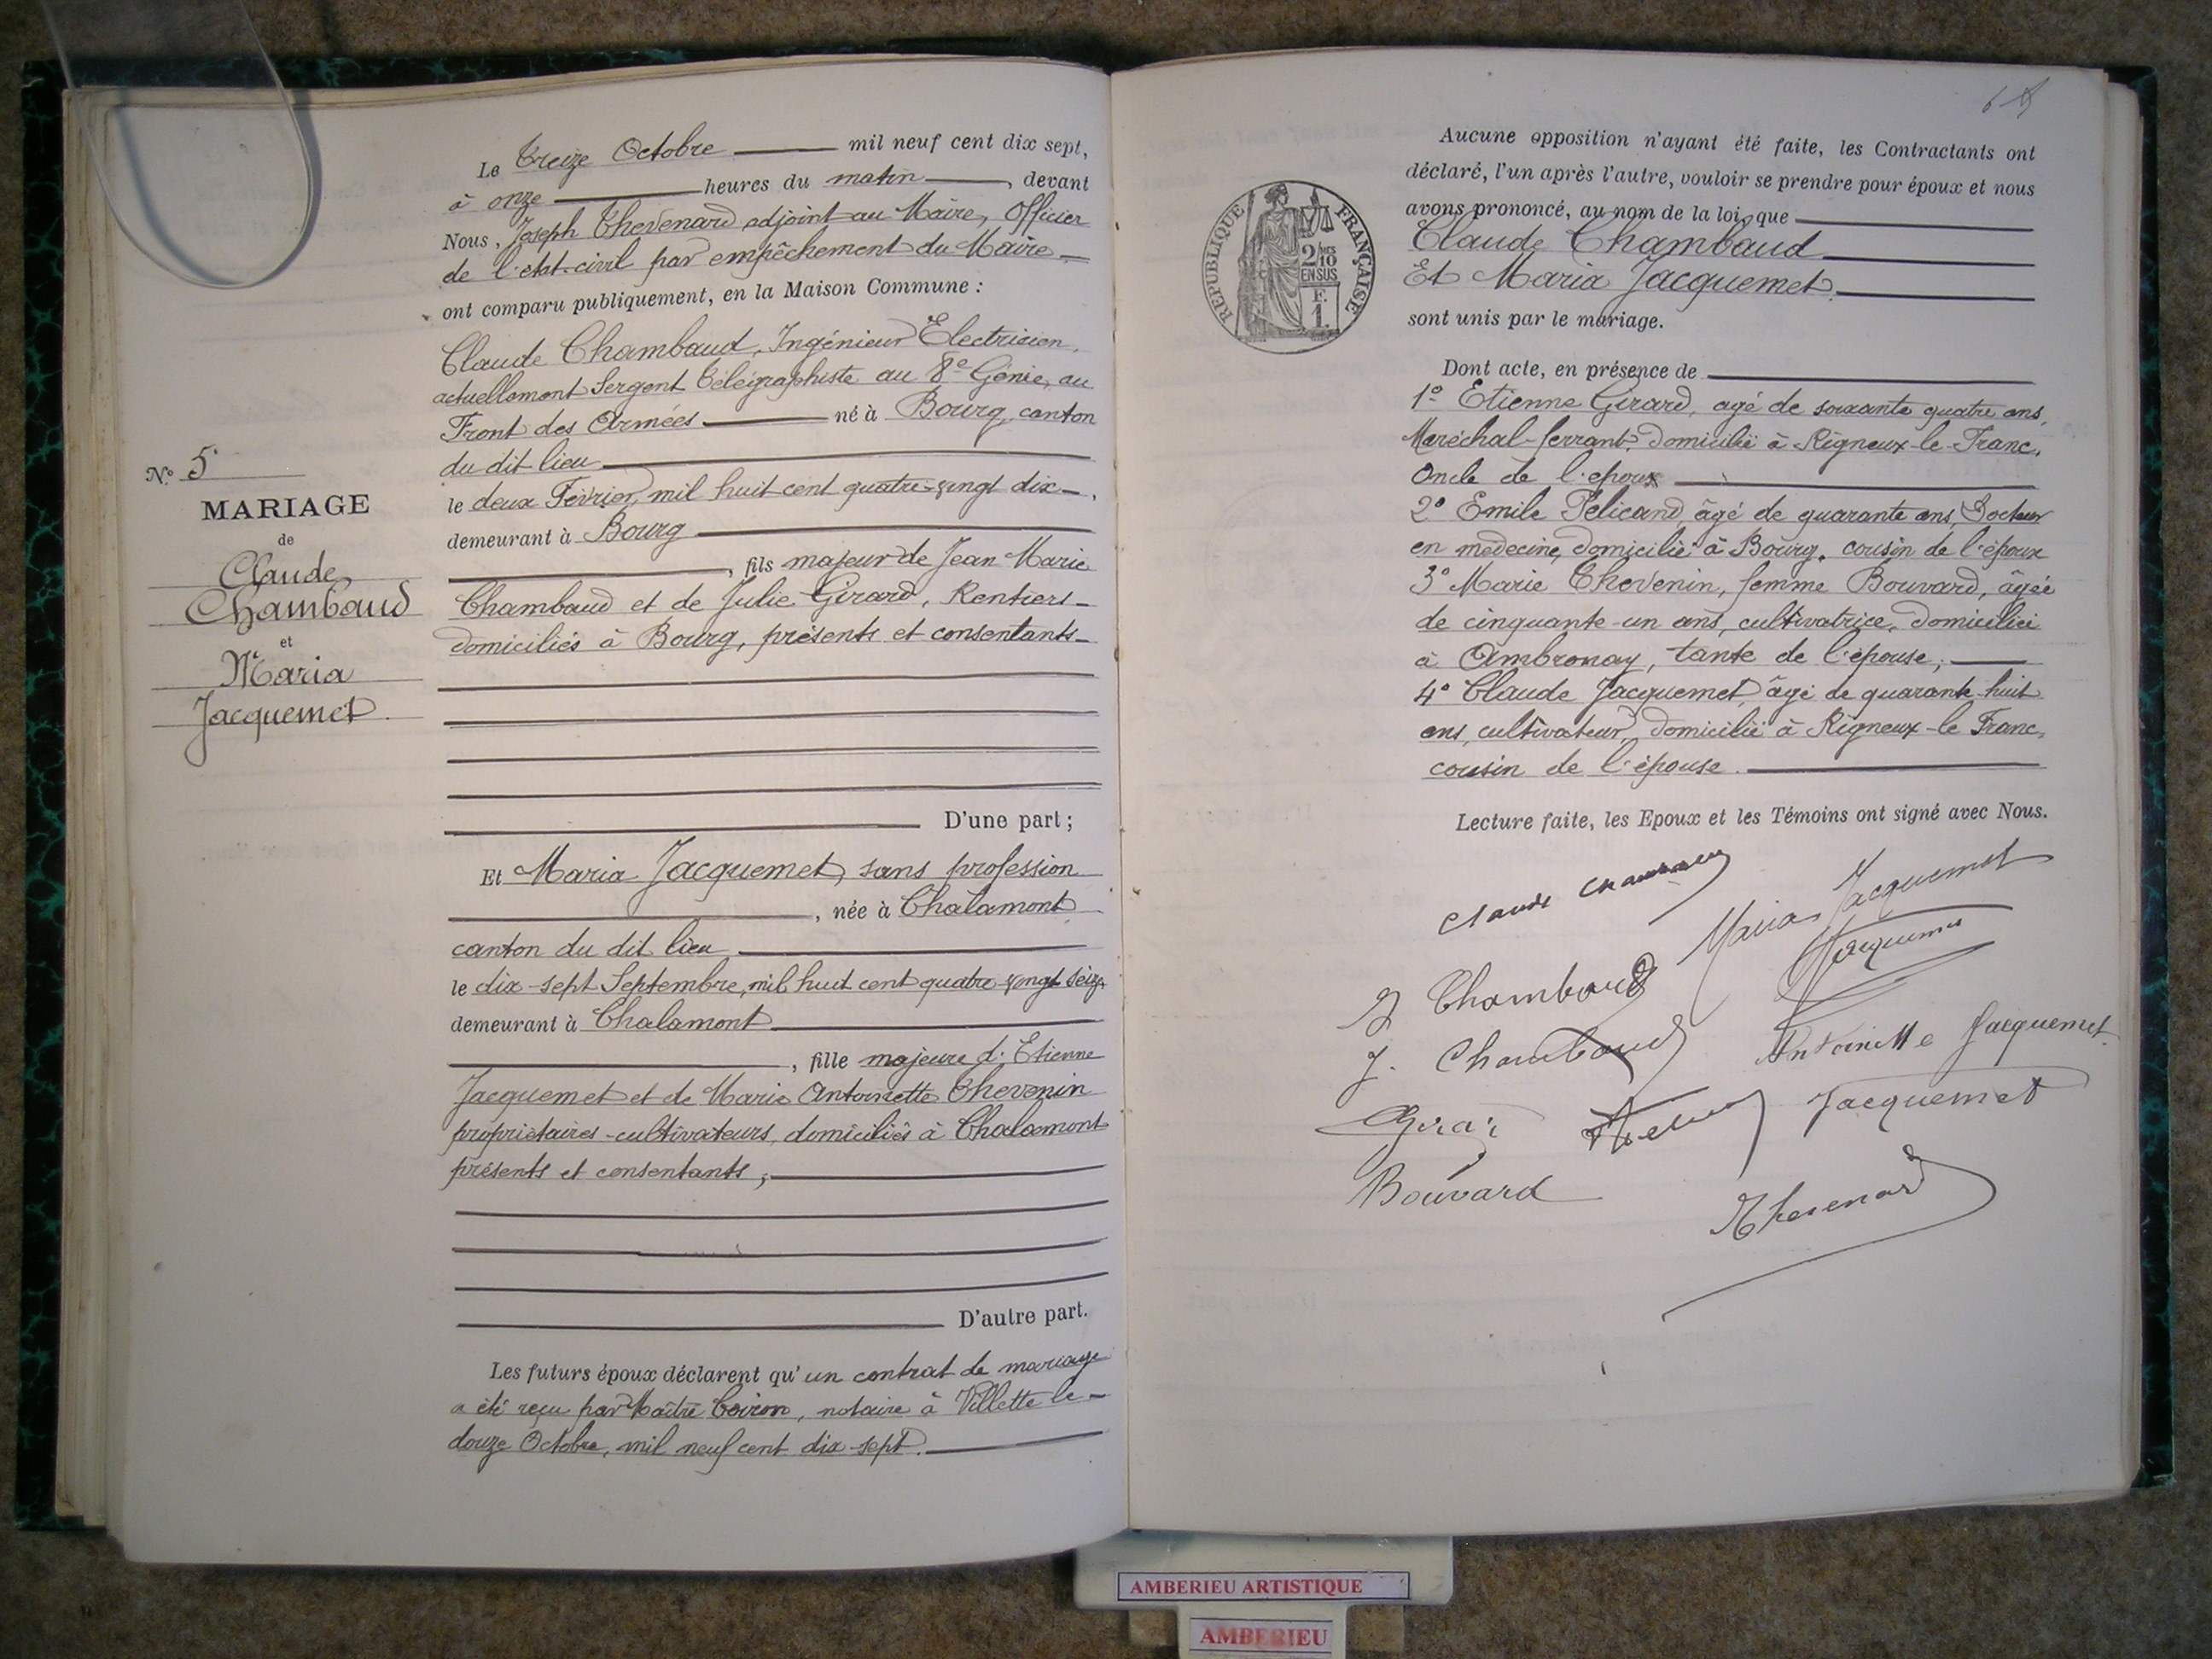 N° 5
MARIAGE
de
Claude
Chambaud
et
Maria
Jacquemet
Le treize Octobre mil neuf cent dix sept,
à onze heures du matin, devant
Nous, Joseph Thevenard adjoint au Maire, Officier
de l'état-civil par empêchement du Maire
ont comparu publiquement, en la Maison Commune :
Claude Chambaud, Ingénieur Electricien,
actuellement Sergent télégraphiste au 8e Génie, au
Front des Armées né à Bourg, canton
du dit lieu
le deux Février, mil huit cent quatre-vingt dix,
demeurant à Bourg
, fils majeur de Jean Marie
Chambaud et de Julie Girard, Rentiers
domiciliés à Bourg, présents et consentants
D'une part ;
Et Maria Jacquemet, sans profession
, née à Chalamont
canton du dit lieu
le dix-sept Septembre, mil huit cent quatre-vingt seize
demeurant à Chalamont
, fille majeure d'Etienne
Jacquemet et de Marie Antoinette Thevenin
propriétaires-cultivateurs, domiciliés à Chalamont
présents et consentants ;
D'autre part.
Les futurs époux déclarent qu'un contrat de mariage
a été reçu par Maître Coiron, notaire à Villette le
douze Octobre, mil neuf cent dix-sept.
REPUBLIQUE FRANÇAISE
2/10
EN SUS
F.
1.
Aucune opposition n'ayant été faite, les Contractants ont
déclaré, l'un après l'autre, vouloir se prendre pour époux et nous
avons prononcé, au nom de la loi, que
Claude Chambaud
Et Maria Jacquemet
sont unis par le mariage.
Dont acte, en présence de
1° Etienne Girard, agé de soixante quatre ans,
Maréchal-ferrant, domicilié à Rigneux-le-Franc,
Oncle de l'époux
2° Emile Pelicand, âgé de quarante ans, Docteur
en médecine, domicilié à Bourg, cousin de l'époux
3° Marie Thevenin, femme Bouvard, âgée
de cinquante-un ans, cultivatrice, domiciliée
à Ambronay, tante de l'épouse ;
4° Claude Jacquemet, âgé de quarante-huit
ans, cultivateur, domicilié à Rigneux-le Franc,
cousin de l'épouse.
Lecture faite, les Epoux et les Témoins ont signé avec Nous.
Claude Chambaud
Maria Jacquemet
Jacquemet
J Chambaud
J. Chambaud
Antoinette Jacquemet
Girard
Jacquemet
Bouvard
Thevenard
AMBERIEU ARTISTIQUE
AMBERIEU